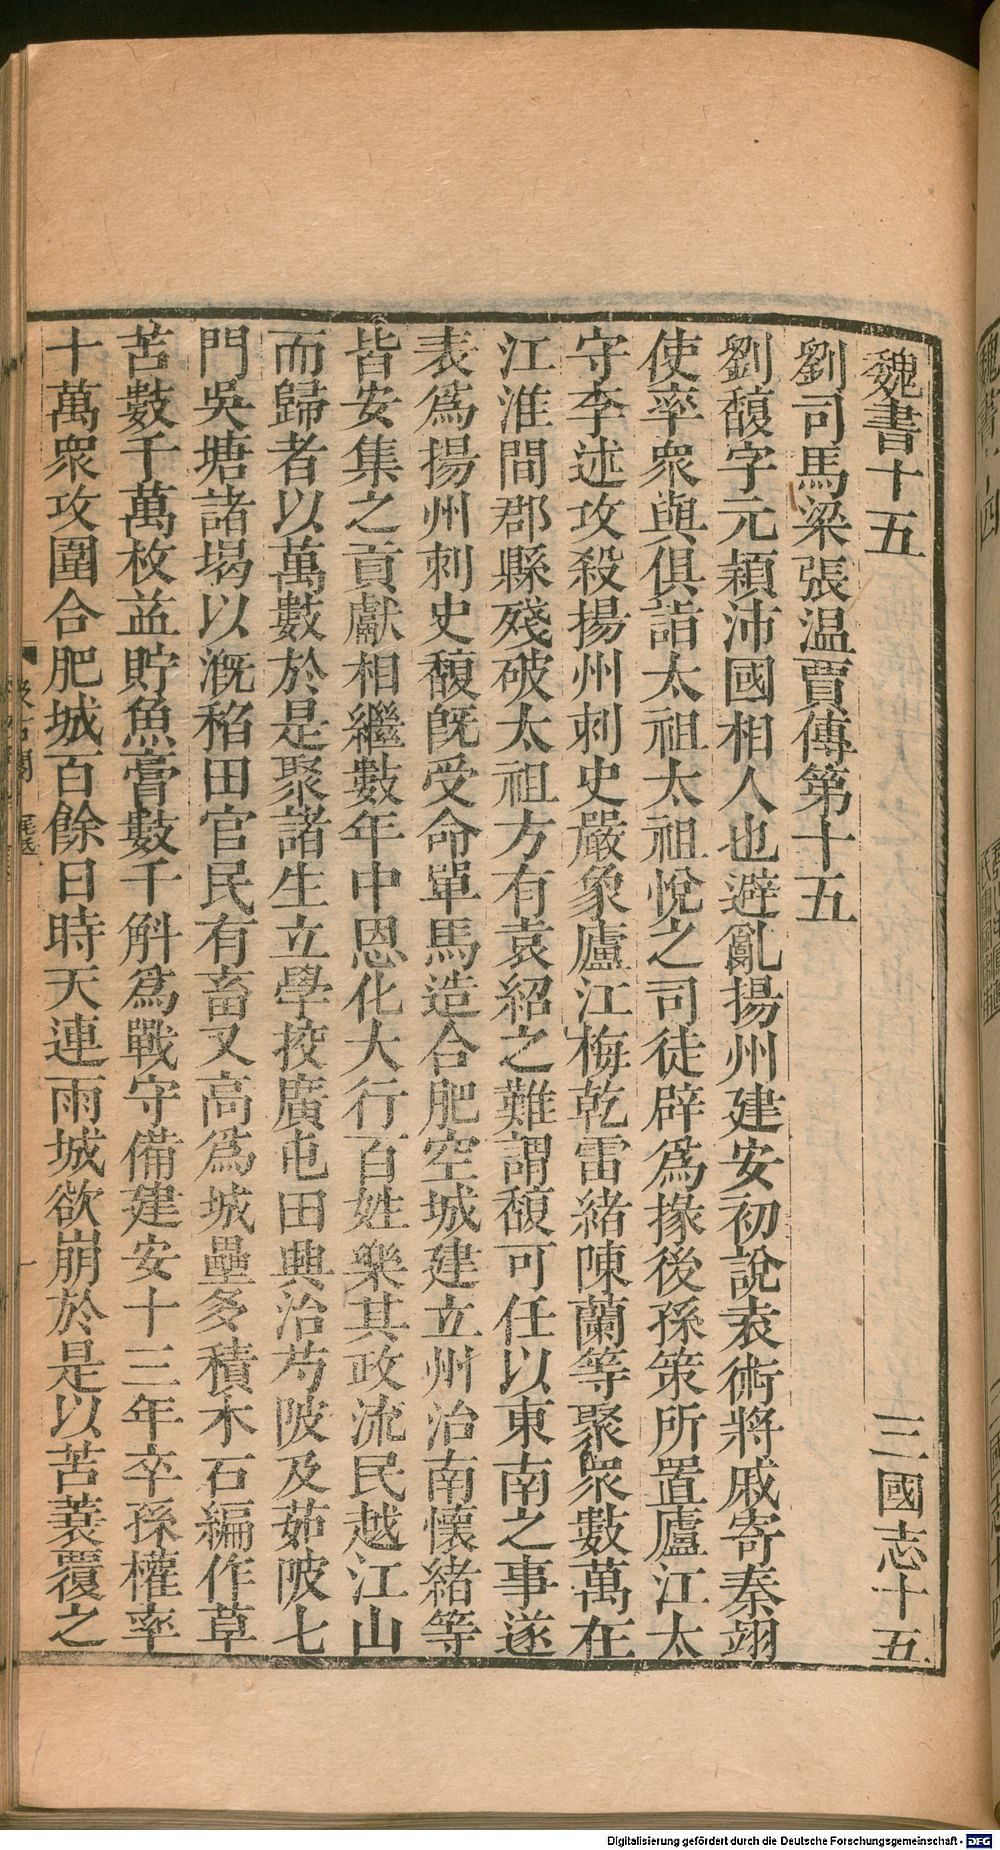 魏書十五　三國志十五
劉司馬梁張温賈傳第十五
劉馥字元穎沛國相人也避亂揚州建安初說袁術將戚寄秦翊
使率衆與俱詣太祖太祖悅之司徒辟爲掾後孫策所置廬江太
守李述攻殺揚州刺史嚴象廬江梅乾雷緒陳蘭等聚衆數萬在
江淮間郡縣殘破太祖方有袁紹之難謂馥可任以東南之事遂
表爲揚州刺史馥旣受命單馬造合肥空城建立州治南懷緒等
皆安集之貢獻相繼數年中恩化大行百姓樂其政流民越江山
而歸者以萬數於是聚諸生立學校廣屯田興治芍陂及茹陂七
門吳塘諸堨以漑稻田官民有畜又高爲城壘多積木石編作草
苫數千萬枚益貯魚膏數千斛爲戰守備建安十三年卒孫權率
十萬衆攻圍合肥城百餘日時天連雨城欲崩於是以苫蓑覆之
一
Digitalisierung gefördert durch die Deutsche Forschungsgemeinschaft - DFG